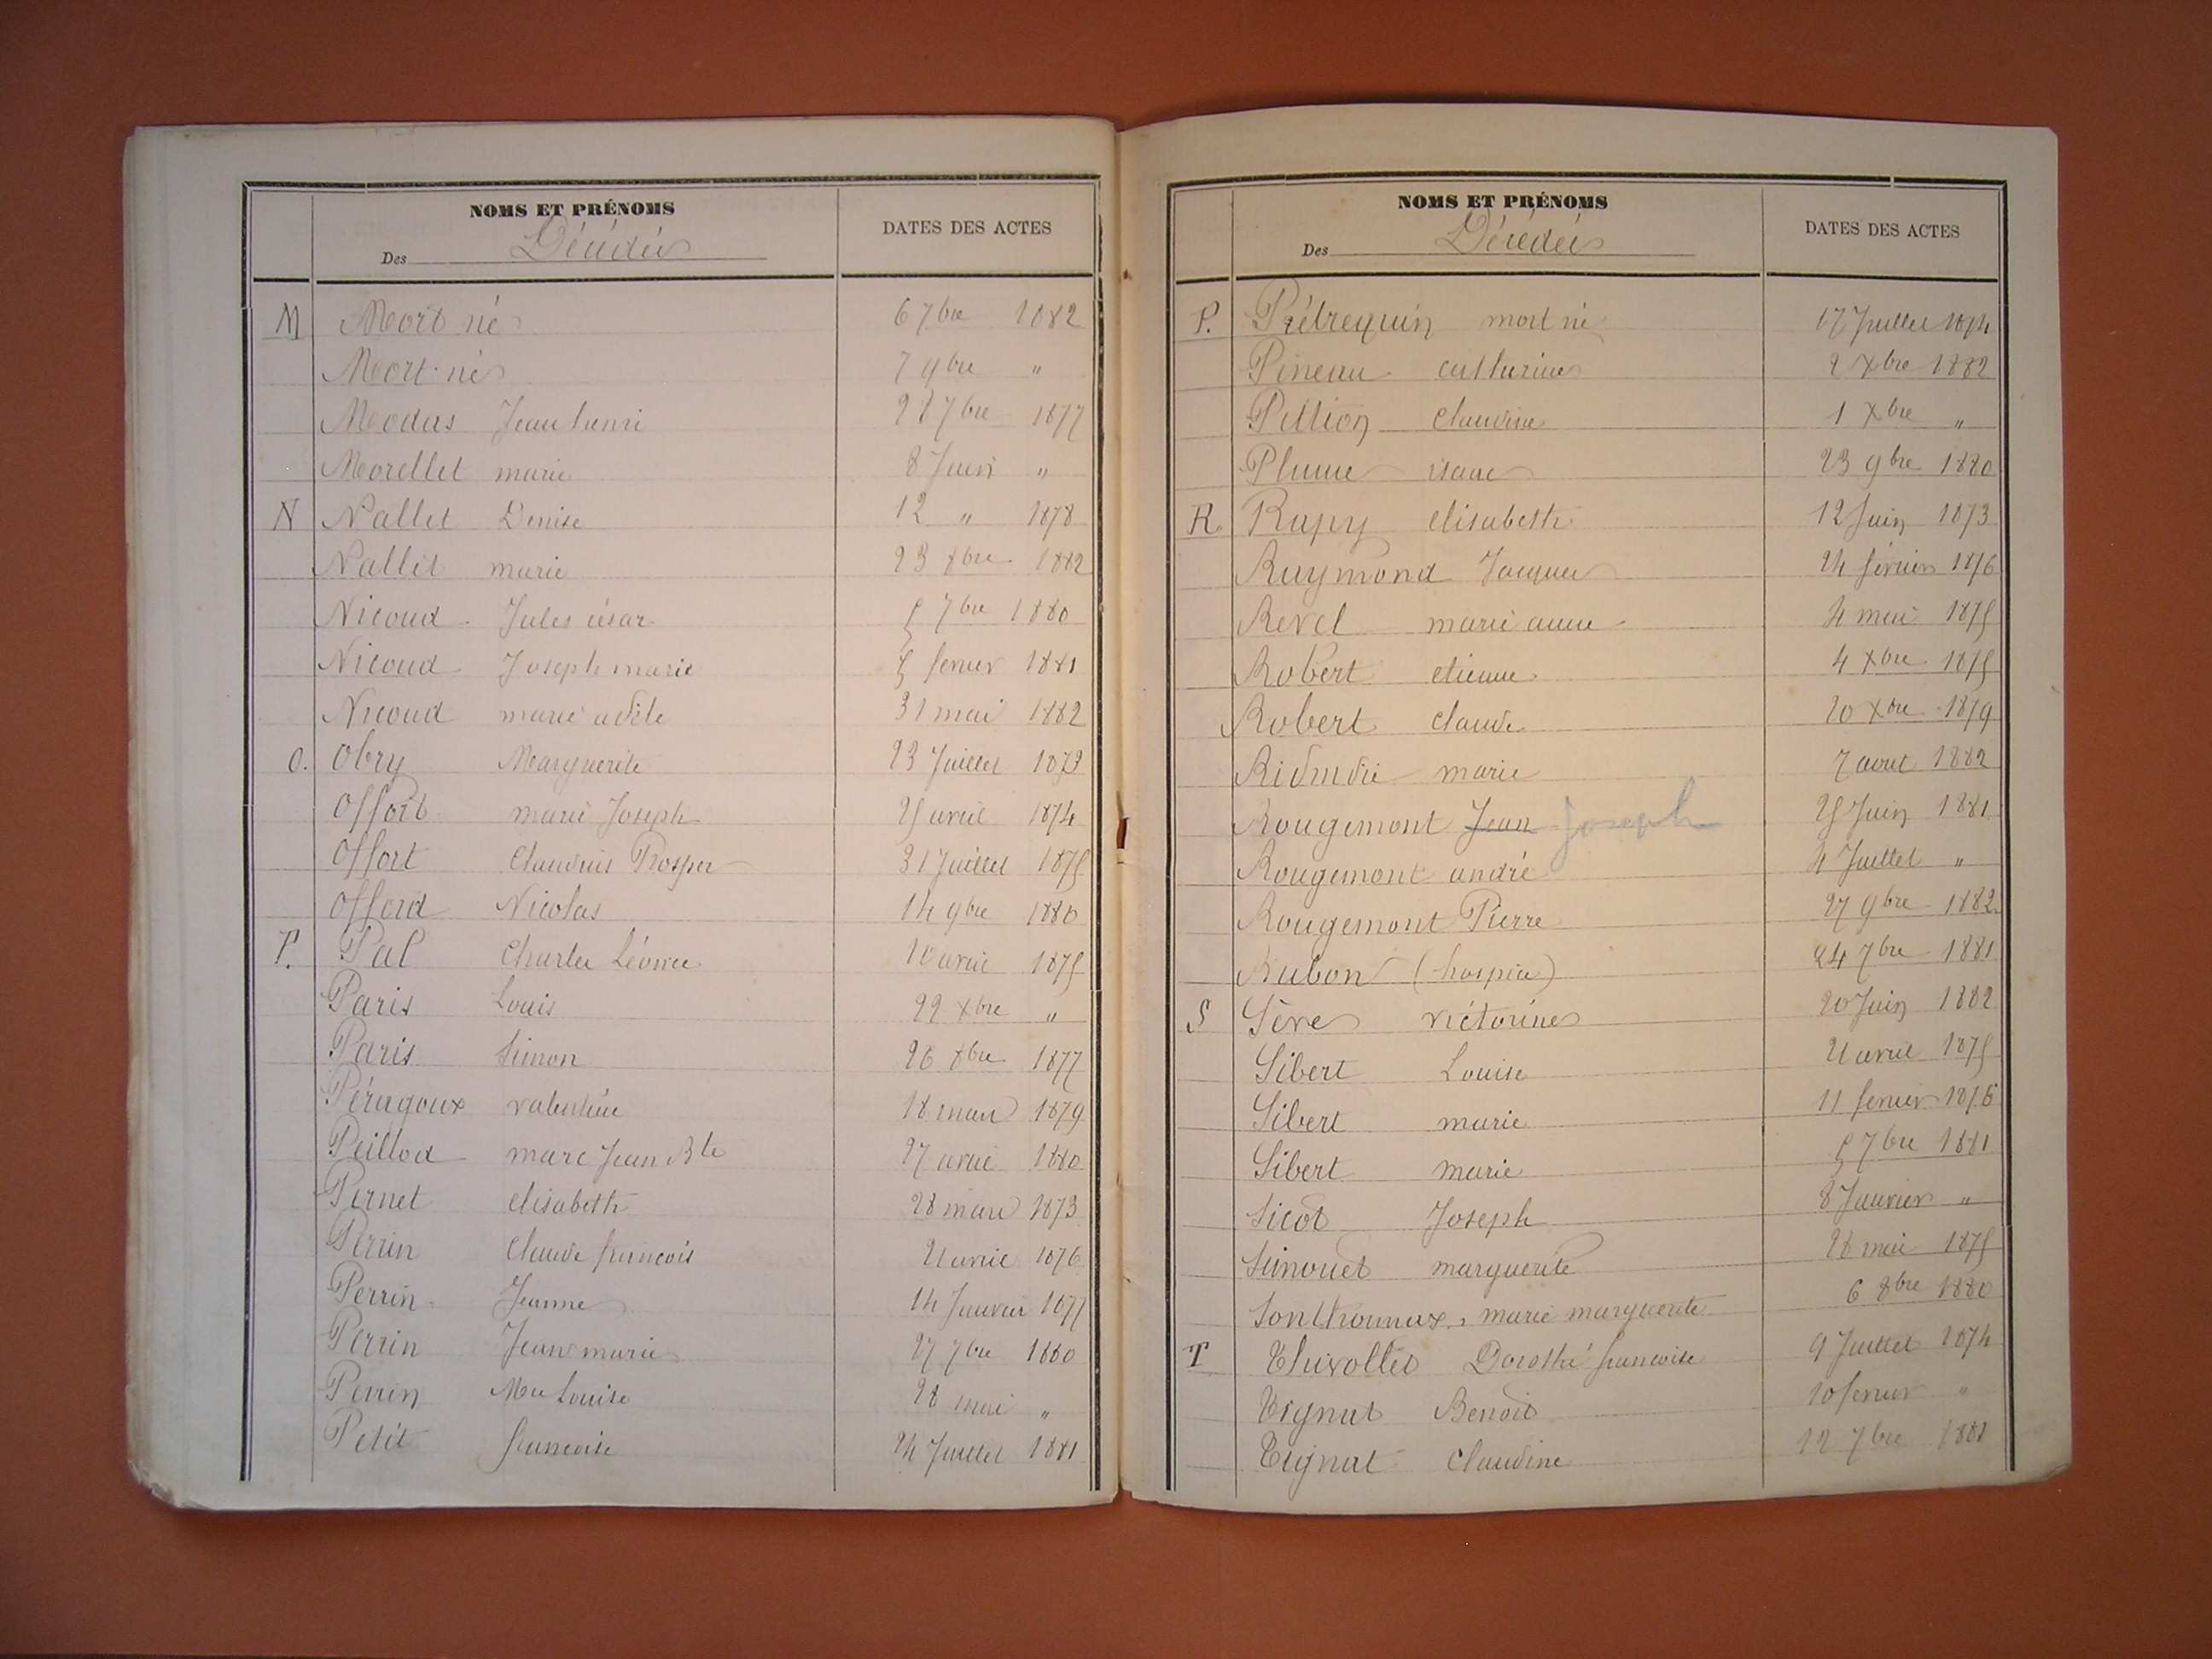 NOMS ET PRÉNOMS
Des Décédés
DATES DES ACTES
M Mort né 6 7bre 1882
Mort né 7 9bre "
Modas Jean henri 28 7bre 1877
Morellet marie 8 Juin "
N Nallet Denise 12 " 1878
Nallet marie 23 8bre 1882
Nicoud Jules césar 5 7bre 1880
Nicoud Joseph marie 5 fevrier 1881
Nicoud marie adèle 31 mai 1882
O. Obry Marguerite 23 Juillet 1873
Offort marie Joseph 25 avril 1874
Offort Claudius Prosper 31 Juillet 1875
Offord Nicolas 14 9bre 1880
P. Pal Charles Léonce 10 avril 1875
Paris Louis 22 xbre "
Paris Simon 26 8bre 1877
Péragoux valentine 18 mars 1879
Peillod marc Jean Bte 27 avril 1880
Pernet elisabeth 28 mars 1873
Perrin Claude francois 21 avril 1876
Perrin Jeanne 14 Janvier 1877
Perrin Jean marie 27 7bre 1880
Perrin Mie Louise 28 mai "
Petit francoise 24 Juillet 1881
NOMS ET PRÉNOMS
Des Décédés
DATES DES ACTES
P. Pétrequin mort né 17 Juillet 1874
Pineau catherine 2 xbre 1882
Pittion Claudine 1 xbre "
Plume isaac 23 9bre 1880
R Rapy elisabeth 12 Juin 1873
Raymond Jacques 24 février 1876
Revel marie anne 4 mai 1875
Robert etienne 4 xbre 1875
Robert claude 20 xbre 1879
marie 7 aout 1882
Rougemont Jean Joseph 25 Juin 1881
Rougemont andré 4 Juillet "
Rougemont Pierre 27 9bre 1882
Rubon (hospice) 24 7bre 1881
S Sève victorine 20 Juin 1882
Sibert Louise 21 avril 1875
Sibert marie 11 fevrier 1876
Sibert marie 5 7bre 1881
Sicot Joseph 8 Janvier "
Simonet marguerite 28 mai 1875
Sonthonnax marie marguerite 6 8bre 1880
T Thivollet Dorothé francoise 9 Juillet 1874
Tignat Benoit 10 fevrier "
Tignat Claudine 12 7bre 1881